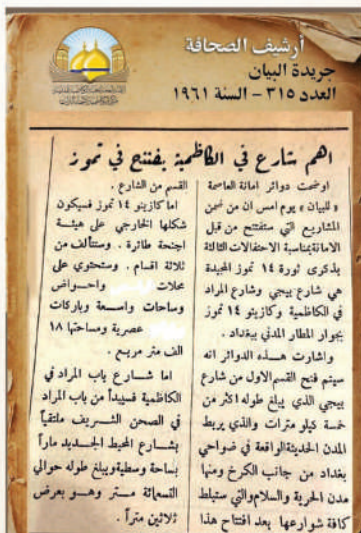 أرشيف الصحافة
جريدة البيان
العدد ٣١٥ - السنة ١٩٦١
اهم شارع في الكاظمية يفتتح في تموز
اوضحت دوائر امانة العاصمة
« للبيان » يوم امس ان من ضمن
المشاريع التي ستفتتح من قبل
الامانة بمناسبة الاحتفالات الثالثة
بذكرى ثورة ١٤ تموز المجيدة
هي شارع بيجي وشارع المراد
في الكاظمية وكازينو ١٤ تموز
بجوار المطار المدني ببغداد .
واشارت هذه الدوائر انه
سيتم فتح القسم الاول من شارع
بيجي الذي يبلغ طوله اكثر من
خمسة كيلو مترات والذي يربط
المدن الحديثة الواقعة في ضواحي
بغداد من جانب الكرخ ومنها
مدن الحرية والسلام والتي ستبلط
كافة شوارعها بعد افتتاح هذا
القسم من الشارع .
اما كازينو ١٤ تموز فسيكون
شكلها الخارجي على هيئة
اجنحة طائرة . وستتألف من
ثلاثة اقسام . وستحتوي على
محلات واحواض
وساحات واسعة وباركات
عصرية ومساحتها ١٨
الف متر مربع .
اما شارع باب المراد في
الكاظمية فسيبدأ من باب المراد
في الصحن الشريف ملتقياً
بشارع المحيط الجديد ماراً
بساحة وسطية ويبلغ طوله حوالي
التسعمائة متر وهو بعرض
ثلاثين متراً .